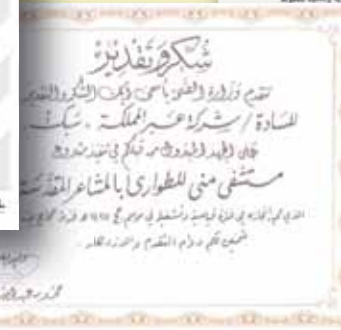 شكر وتقدير
تتقدم وزارة الصحة بأسمى آيات الشكر والتقدير
للسادة / شركة عبر المملكة . سبك .
على الجهد المبذول من قبلكم في تنفيذ مشروع
مستشفى منى للطوارئ بالمشاعر المقدسة
الذي تم إنجازه في فترة قياسية وتشغيله في موسم حج
متمنين لكم دوام التقدم والازدهار .